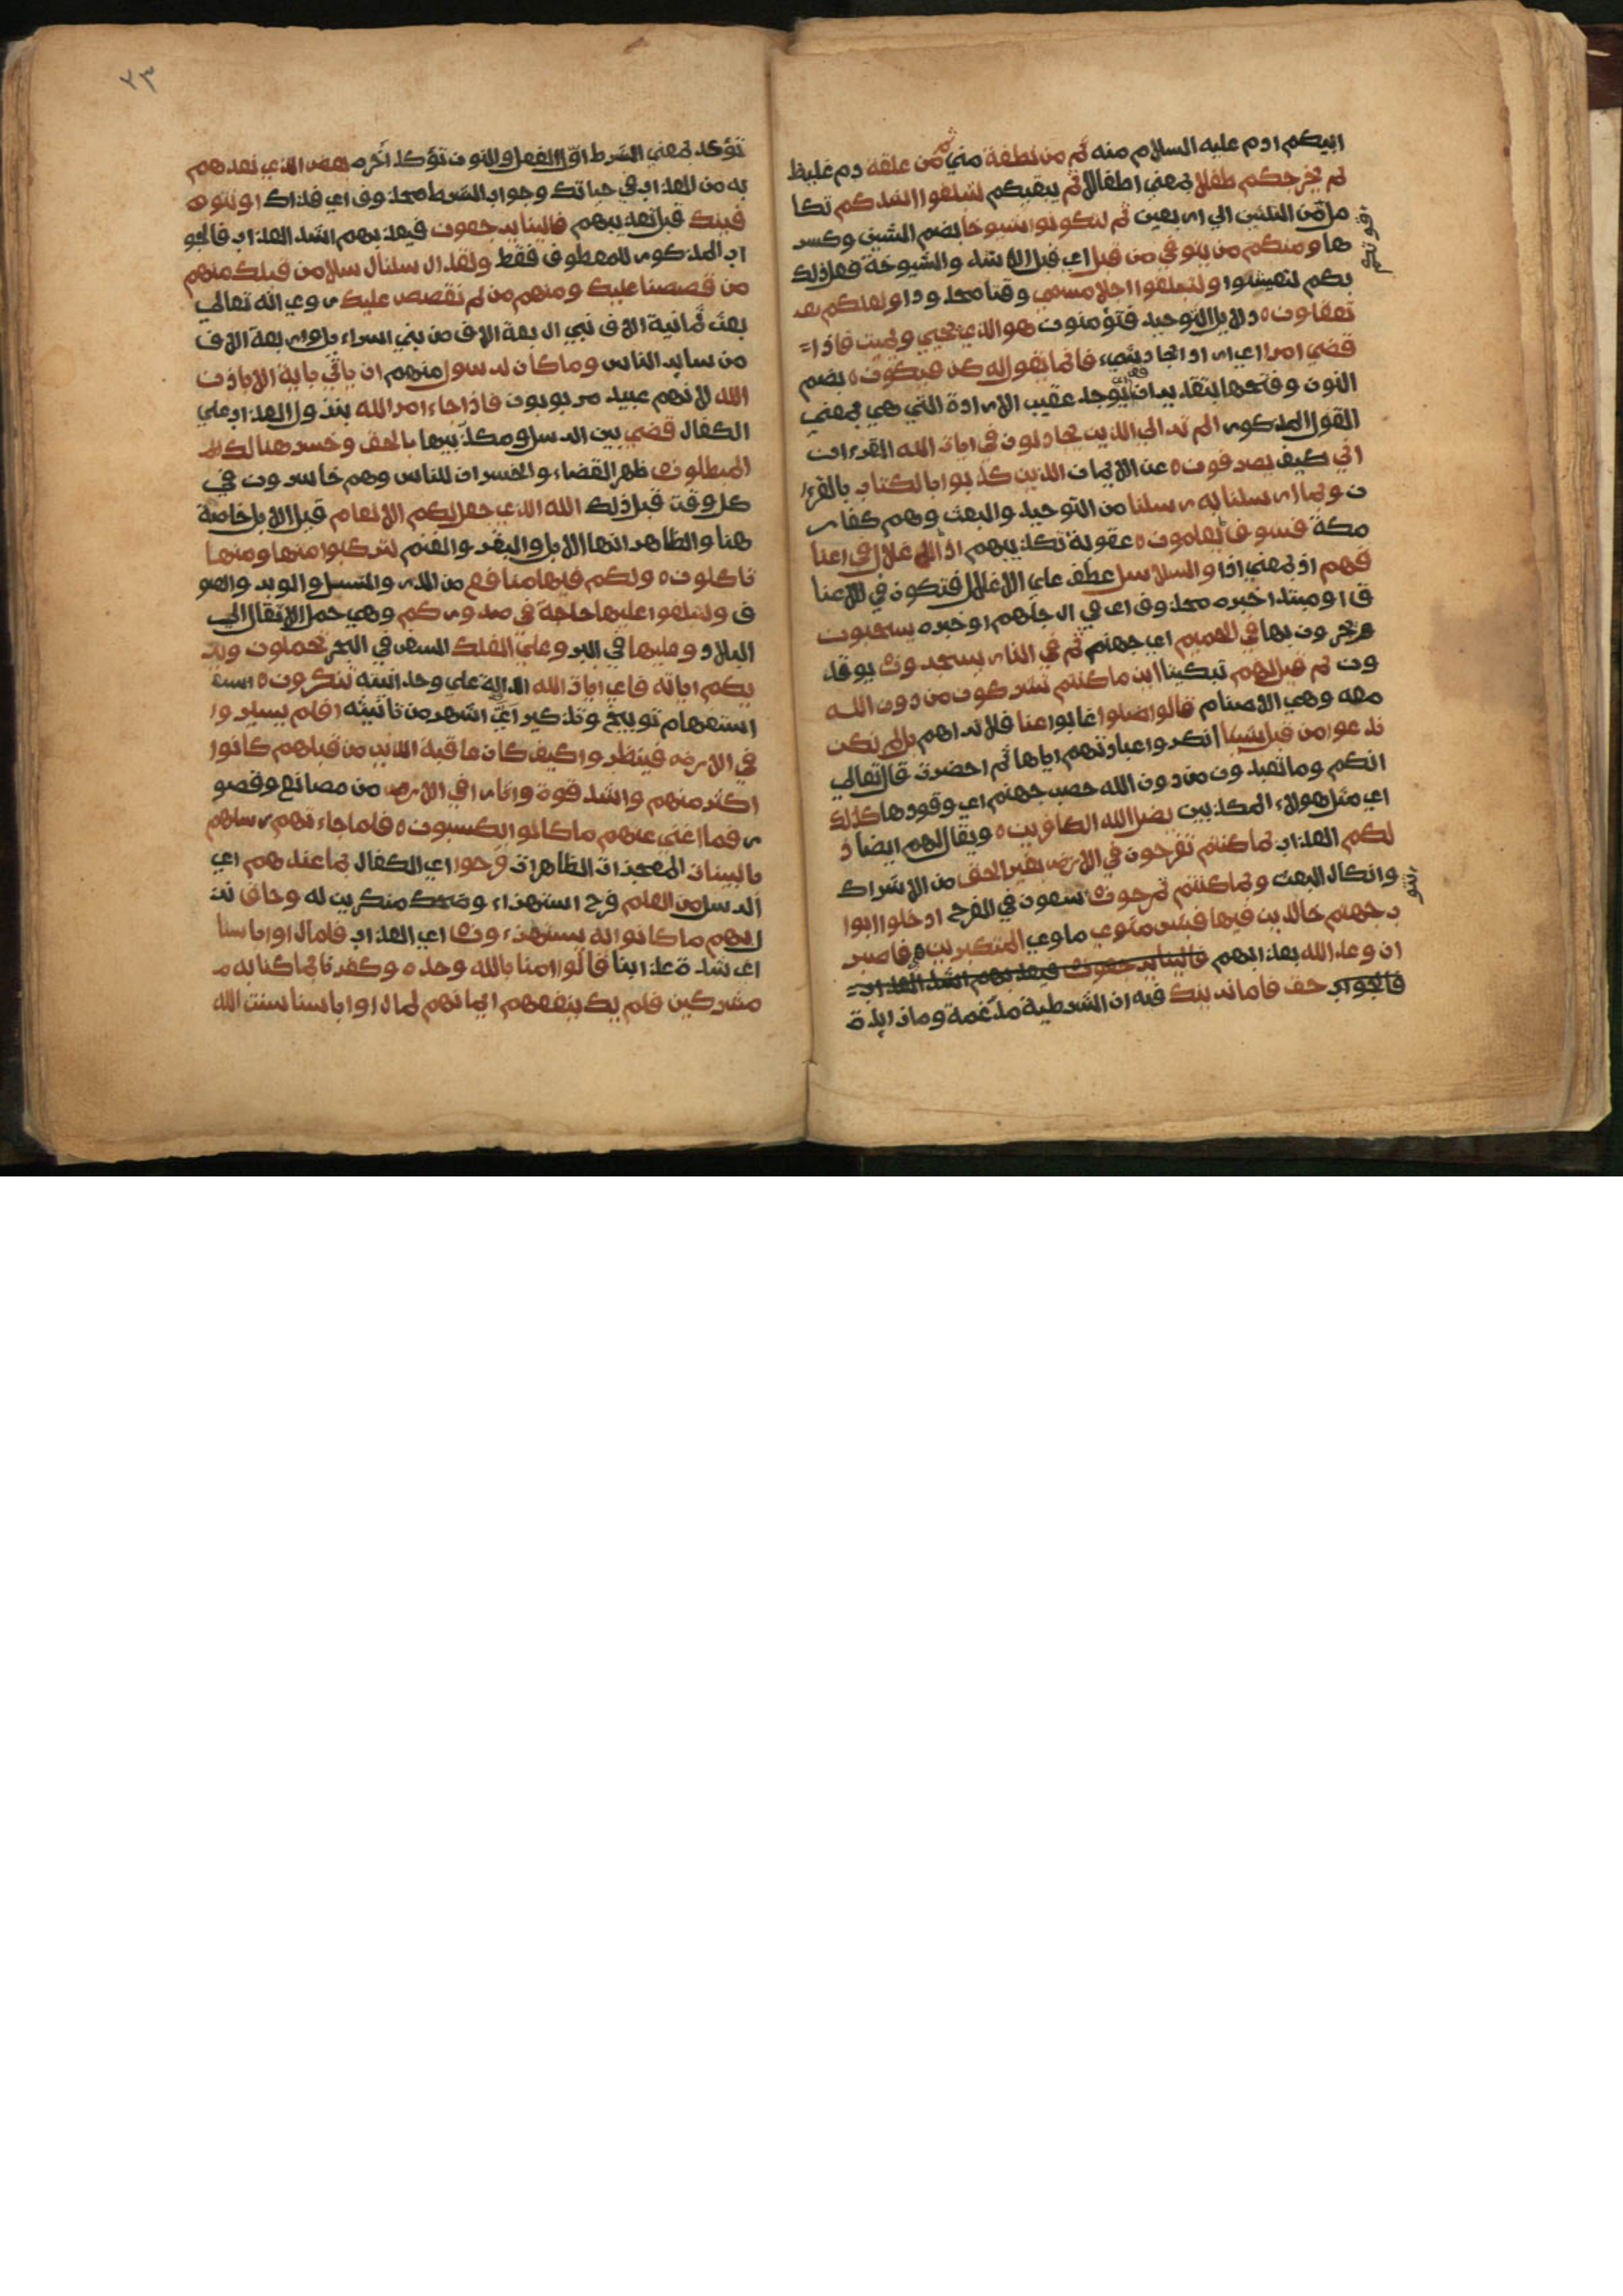 ابيكم ادم عليه السلام منه ثم من نطفة مني ثم من علقة دم غليظ
ثم يخرجكم طفلا بمعني اطفالا ثم يبقيكم لتبلغوا اشدكم تكا
مل قوتكم من الثلثين الي اربعين ثم لتكونوا شيوخا بضم الشين وكسر
ها ومنكم من يتوفي من قبل اي قبل الاشد والشيوخة فعل ذلك
بكم لتعيشوا ولتبلغوا اجلا مسمي وقتا محدودا ولعلكم تعـ
تعقلون دلايل التوحيد فتؤمنون هو الذي يحيي ويميت فاذا
قضي امرا اي اراد ايجاد شيء فانما يقول له كن فيكون بضم
النون وفتحها بتقدير ان اي يوجد عقيب الارادة التي هي بمعني
القول المذكور الم تر الي الذين يجادلون في ايات الله القرءان
اني كيف يصرفون عن الايمان الذين كذبوا بالكتاب بالقرءا
ن وبما ارسلنا به رسلنا من التوحيد والبعث وهم كفار
مكة فسوف يعلمون عقوبة تكذيبهم اذ الاغلال في اعنا
قهم اذ بمعني اذا والسلاسل عطف علي الاغلال فتكون في الاعنا
ق او مبتدا خبره محذوف اي في ارجلهم او خبره يسحبون
يجرون بها في الحميم اي جهنم ثم في النار يسجرون يوقد
ون ثم قيل لهم تبكيتا اين ما كنتم تشركون من دون الله
معه وهي الاصنام قالوا ضلوا غابوا عنا فلا نراهم بل لم نكن
ندعوا من قبل شيئا انكروا عبادتهم اياها ثم احضرت قال تعالي
انكم وما تعبدون من دون الله حصب جهنم اي وقودها كذلك
اي مثل هولاء المكذبين يضل الله الكافرين ويقال لهم ايضا ذ
لكم العذاب بما كنتم تفرحون في الارض بغير الحق من الاشراك
وانكار البعث وبما كنتم تمرحون تتسعون في الفرح ادخلوا ابوا
ب جهنم خالدين فيها فبئس مثوي ماوي المتكبرين فاصبر
ان وعد الله بعذابهم فالينا يرجعون فيعذبهم اشد العذاب
فالجواب حق فاما نرينك فيه ان الشرطية مدغمة وما زايدة
٢٣
تؤكد بمعني الشرط اول الفعل والنون تؤكد آخره بعض الذي نعدهم
به من العذاب في حياتك وجواب الشرط محذوف اي فذاك او نتو
فينك قبل تعذيبهم فالينا يرجعون فيعذبهم اشد العذاب فالجو
اب المذكور للمعطوف فقط ولقد ارسلنا رسلا من قبلك منهم
من قصصنا عليك ومنهم من لم نقصص عليك روي الله تعالي
بعث ثمانية الاف نبي اربعة الاف من بني اسراءيل واربعة الاف
من ساير الناس وما كان لرسول منهم ان ياتي باية الا باذن
الله لانهم عبيد مربوبون فاذا جاء امر الله بنزول العذاب علي
الكفار قضي بين الرسل ومكذبيها بالحق وخسر هنالك
المبطلون ظهر القضاء والخسران للناس وهم خاسرون في
كل وقت قبل ذلك الله الذي جعل لكم الانعام قيل الابل خاصة
هنا والظاهر انها الابل والبقر والغنم لتركبوا منها ومنها
تاكلون ولكم فيها منافع من الدر والنسل والوبر والصو
ف ولتبلغوا عليها حاجة في صدوركم وهي حمل الاثقال الي
البلاد وعليها في البر وعلي الفلك السفن في البحر تحملون وير
يكم اياته فاي ايات الله الدالة علي وحدانيته تنكرون
استفهام توبيخ وتذكير اي اشهر من تانيثه افلم يسيروا
في الارض فينظروا كيف كان عاقبة الذين من قبلهم كانوا
اكثر منهم واشد قوة واثارا في الارض من مصانع وقصو
ر فما اغني عنهم ما كانوا يكسبون فلما جاءتهم رسلهم
بالبينات المعجزات الظاهرات فرحوا اي الكفار بما عندهم اي
الرسل من العلم فرح استهزاء وضحك منكرين له وحاق نز
ل بهم ما كانوا به يستهزءون اي العذاب فلما راوا باسنا
اي شدة عذابنا قالوا امنا بالله وحده وكفرنا بما كنا به مـ
مشركين فلم يك ينفعهم ايمانهم لما راوا باسنا سنت الله